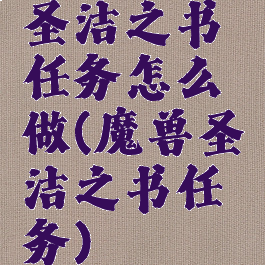 圣洁之书
任务怎么
做(魔兽圣
洁之书任
务)